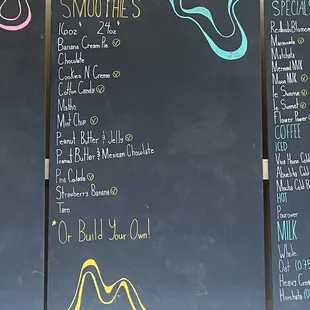 SMOOTHIES
16oz $ 24oz
Banana Cream Pie
Chocolate
Cookies N Creme
Cotton Candy
Matcha
Mint Chip
Peanut Butter & Jelly
Peanut Butter & Mexican Chocolate
Pina Colada
Strawberry Banana
Taro
*Or Build Your Own!
SPECIALS
Matchata
Mermaid Milk
Moon Milk
le Sunrise
le Sunset
Flower Power
COFFEE
ICED
HOT
Pourover
MILK
Whole
Oat (0.75
Heavy Cre
Horchata (0